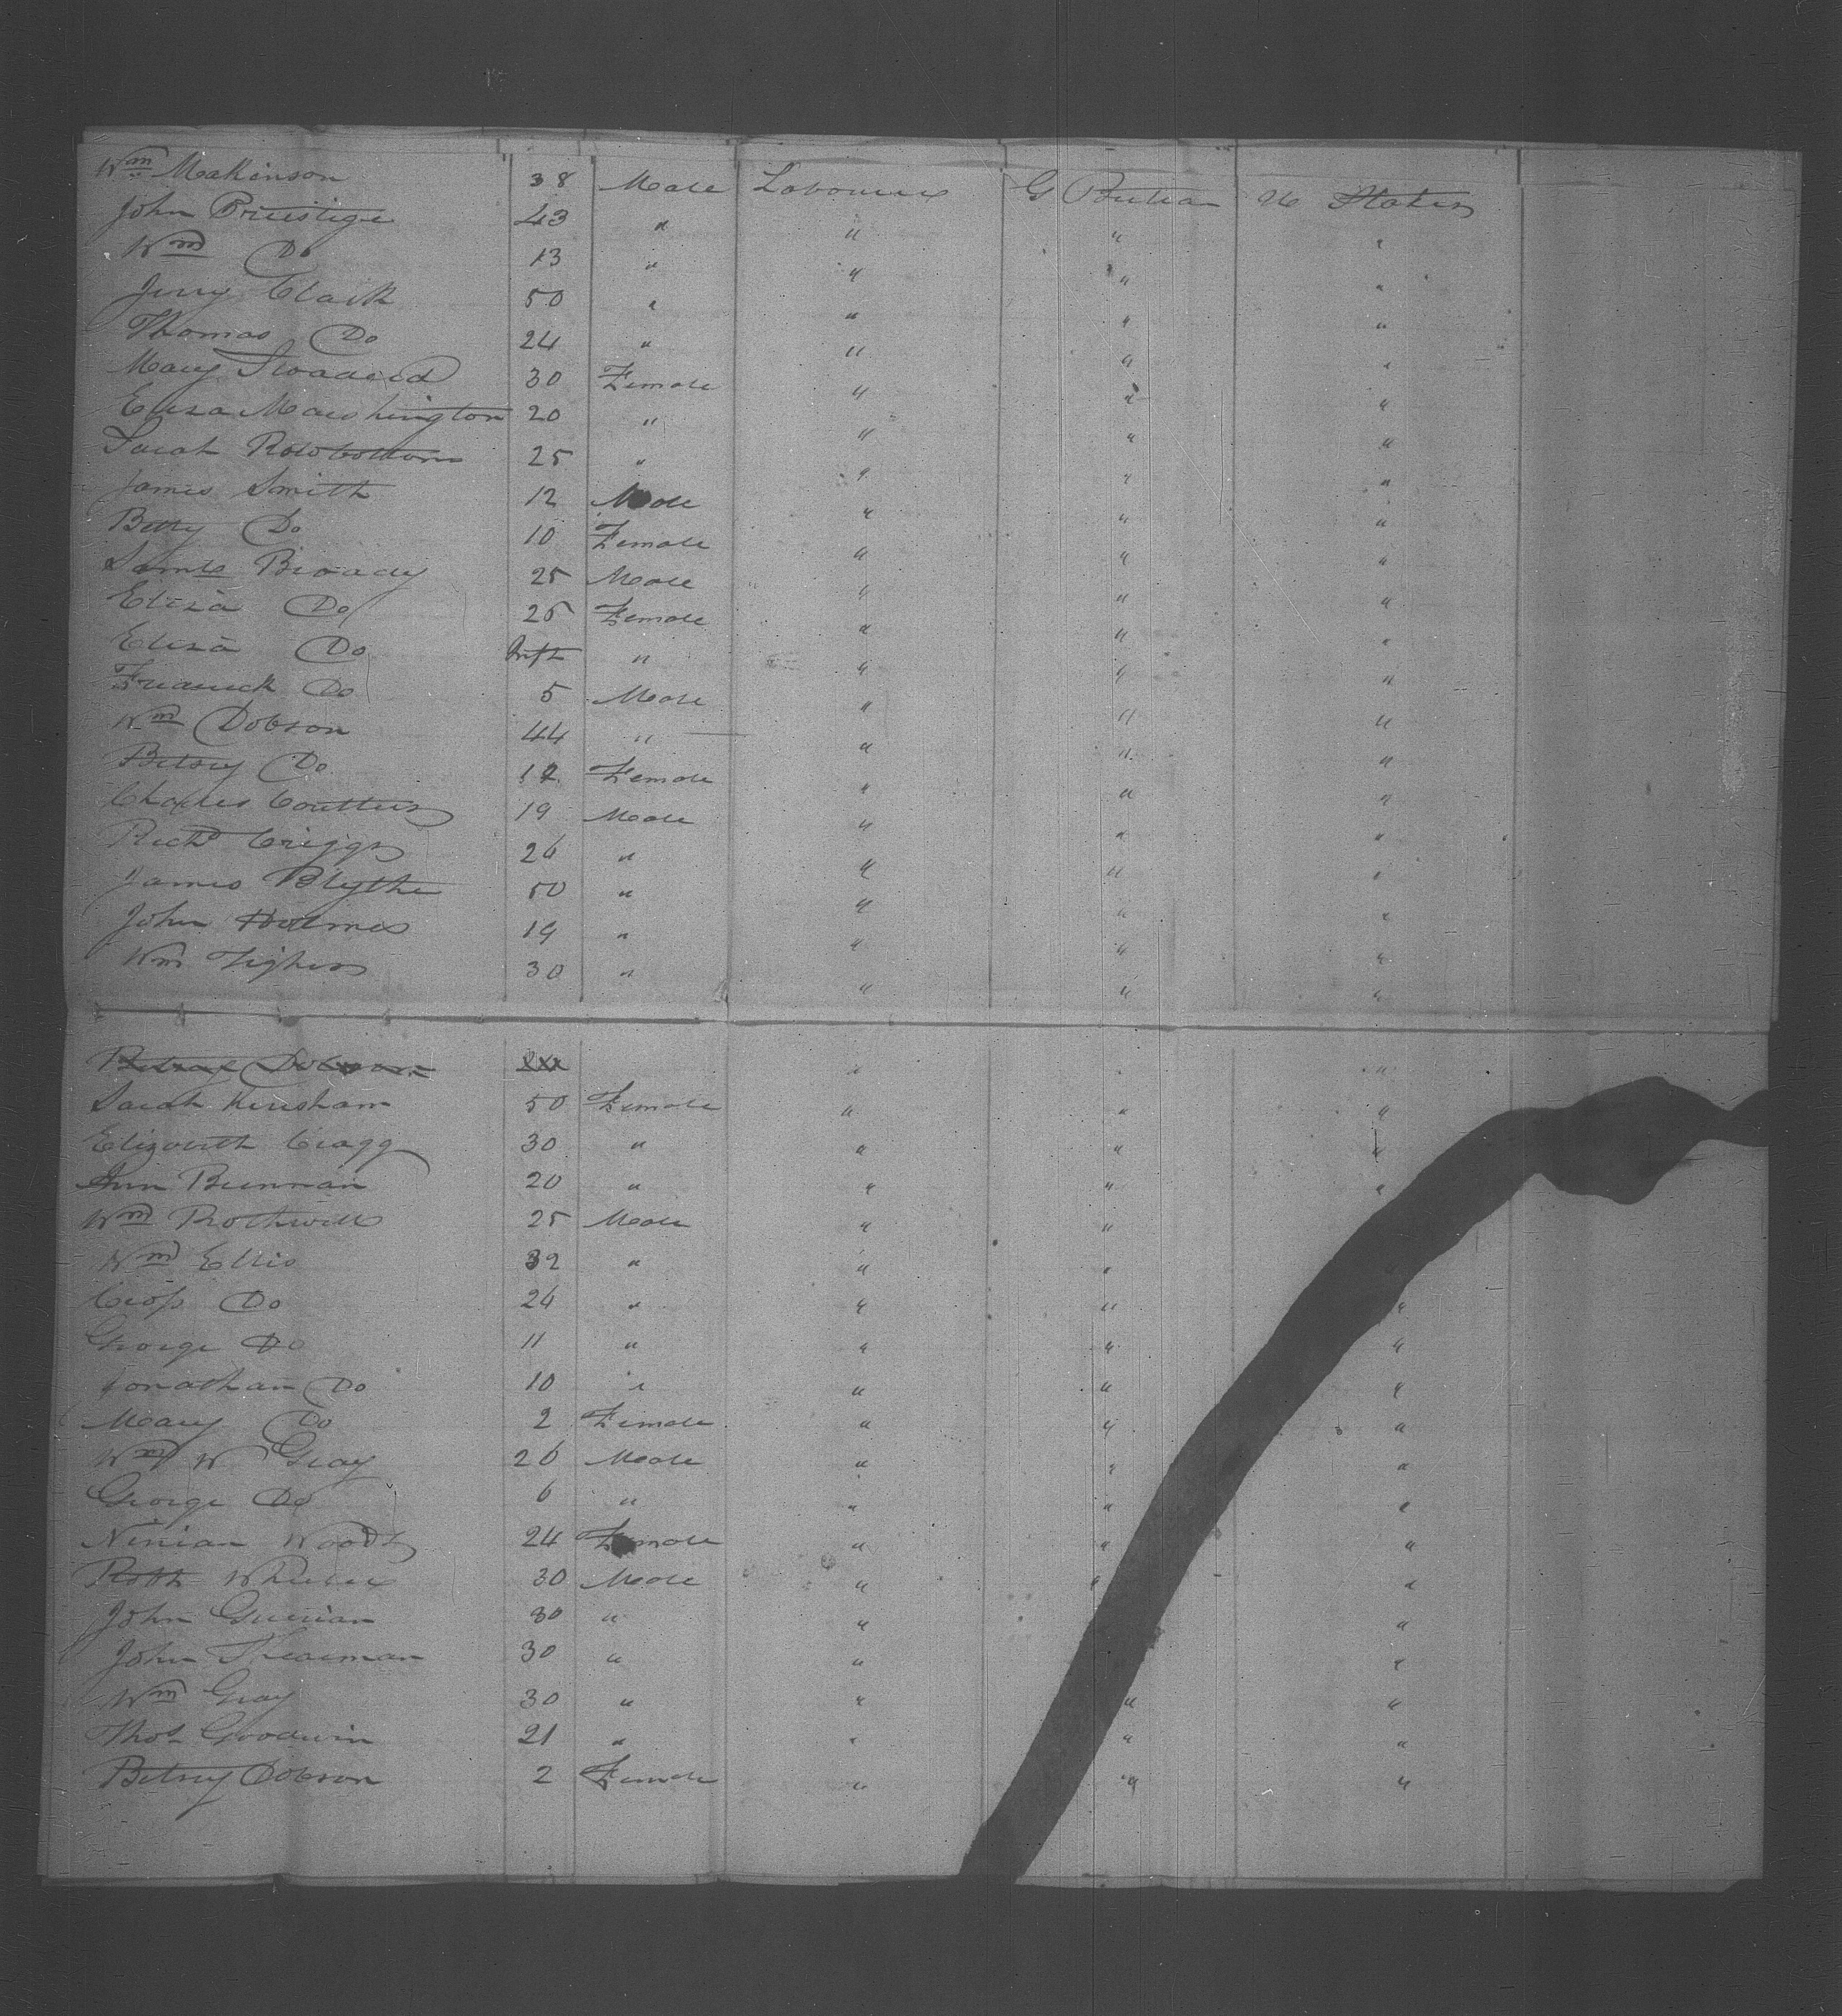 Wm Makinson 38 Male Labourer G Britian U States
John Priestige 43 " " " "
Wm Do 13 " " " "
Jerry Clark 50 " " " "
Thomas Do 24 " " " "
Mary 30 Female " " "
Eliza 20 " " " "
Sarah Rowbottom 25 " " " "
James Smith 12 Male " " "
Betty Do 10 Female " " "
James Broady 25 Male " " "
Eliza Do 25 Female " " "
Eliza Do Inft " " " "
Fredrick Do 5 Male " " "
Wm Dobson 44 " " " "
Betsey Do 12 Female " " "
Charles 19 Male " " "
Richd Griggs 26 " " " "
James Blythe 50 " " " "
John Holmes 19 " " " "
Wm 30 " " " "
Betsey Dobson " " "
Sarah Kersham 50 Female " " "
Elizabeth Cragg 30 " " " "
Ann Brennan 20 " " " "
Wm Rothwell 25 Male " " "
Wm Ellis 32 " " "
Do 24 " " " "
George Do 11 " " " "
Jonathan Do 10 " " " "
Mary Do 2 Female " " "
Wm W Gray 26 Male " " "
George Do 6 " " " "
Ninian Woods 24 Female " " "
Robt Wheeler 30 Male " " "
John 30 " " "
John 30 " " "
Wm Gray 30 " " " "
Thos Goodwin 21 " " " "
Betsey Dobson 2 Female " " "